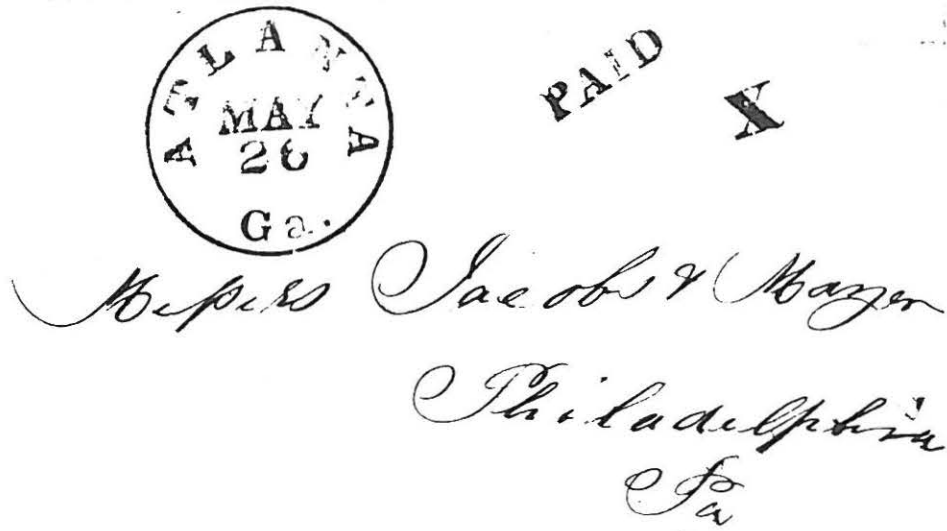 ATLANTA
MAY
26
Ga.
PAID
X
Messrs Jacobs & Mayer
Philadelphia
Pa